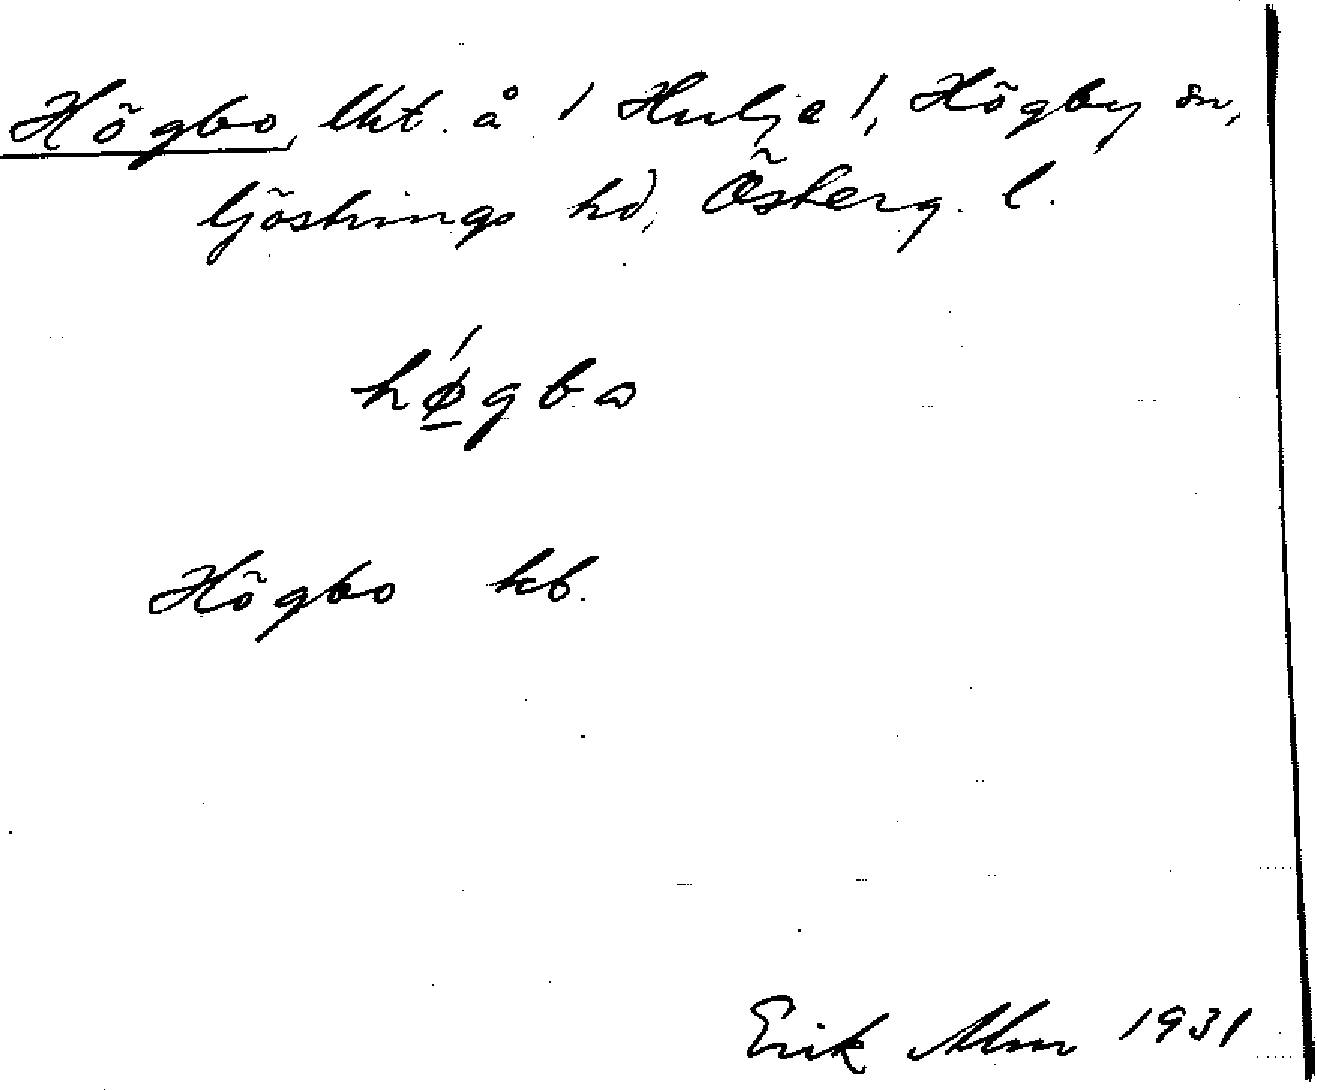 Högbo, lht. å / Hulje /, Högby sn,
Göstrings hd, Österg. l.
hǿ̱gbo
Högbo kb.
Erik Alm 1931